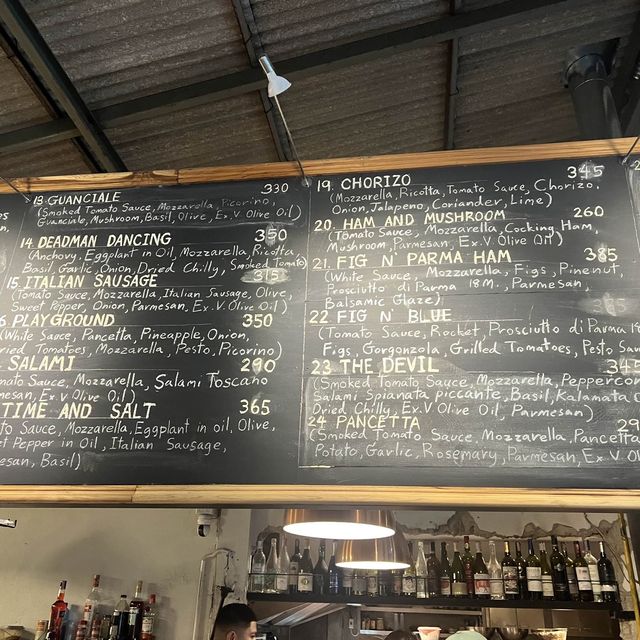 13 GUANCIALE 330
(Smoked Tomato Sauce, Mozzarella, Picorino,
Guanciale, Mushroom, Basil, Olive, Ex.V Olive Oil)
14 DEADMAN DANCING 350
(Anchovy, Eggplant in Oil, Mozzarella, Ricotta,
Basil, Garlic, Onion, Dried Chilly, Smoked Tomato)
15 ITALIAN SAUSAGE 315
(Tomato Sauce, Mozzarella, Italian Sausage, Olive,
Sweet Pepper, Onion, Parmesan, Ex.V Olive Oil)
PLAYGROUND 350
(White Sauce, Pancetta, Pineapple, Onion,
Tomatoes, Mozzarella, Pesto, Picorino)
SALAMI 290
Sauce, Mozzarella, Salami Toscano
Ex.V Olive Oil)
TIME AND SALT 365
Sauce, Mozzarella, Eggplant in oil, Olive,
Pepper in Oil, Italian Sausage,
Basil)
19. CHORIZO 345
(Mozzarella, Ricotta, Tomato Sauce, Chorizo,
Onion, Jalapeno, Coriander, Lime)
20. HAM AND MUSHROOM 260
(Tomato Sauce, Mozzarella, Cocking Ham,
Mushroom, Parmesan, Ex.V Olive Oil)
21. FIG N' PARMA HAM 385
(White Sauce, Mozzarella, Figs, Pinenut,
Prosciutto di Parma 18M., Parmesan,
Balsamic Glaze)
22 FIG N' BLUE
(Tomato Sauce, Rocket, Prosciutto di Parma
Figs, Gorgonzola, Grilled Tomatoes, Pesto
23 THE DEVIL 345
(Smoked Tomato Sauce, Mozzarella,
Salami Spianata piccante, Basil, Kalamata
Dried Chilly, Ex.V Olive Oil, Parmesan)
24 PANCETTA
(Smoked Tomato Sauce, Mozzarella, Pancetta,
Potato, Garlic, Rosemary, Parmesan, Ex.V